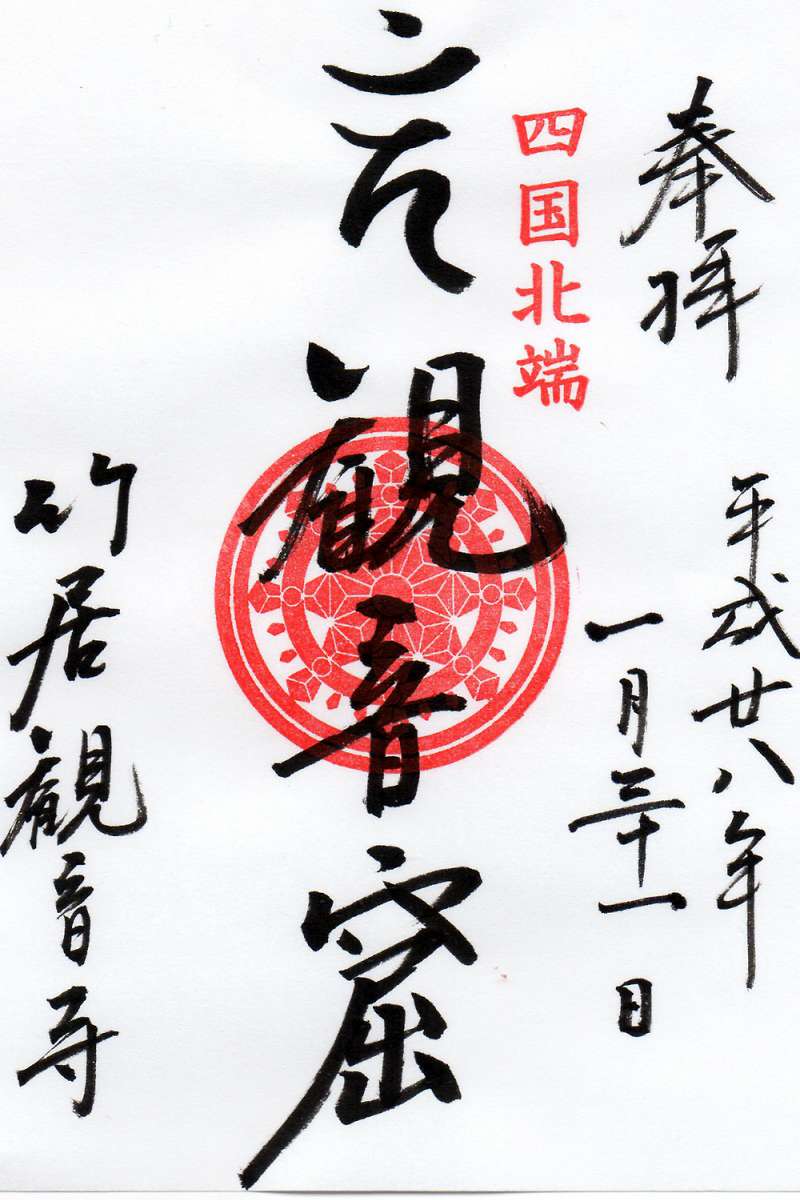 奉拝
平成廿八年
一月三十一日
四国北端
観音窟
竹居観音寺